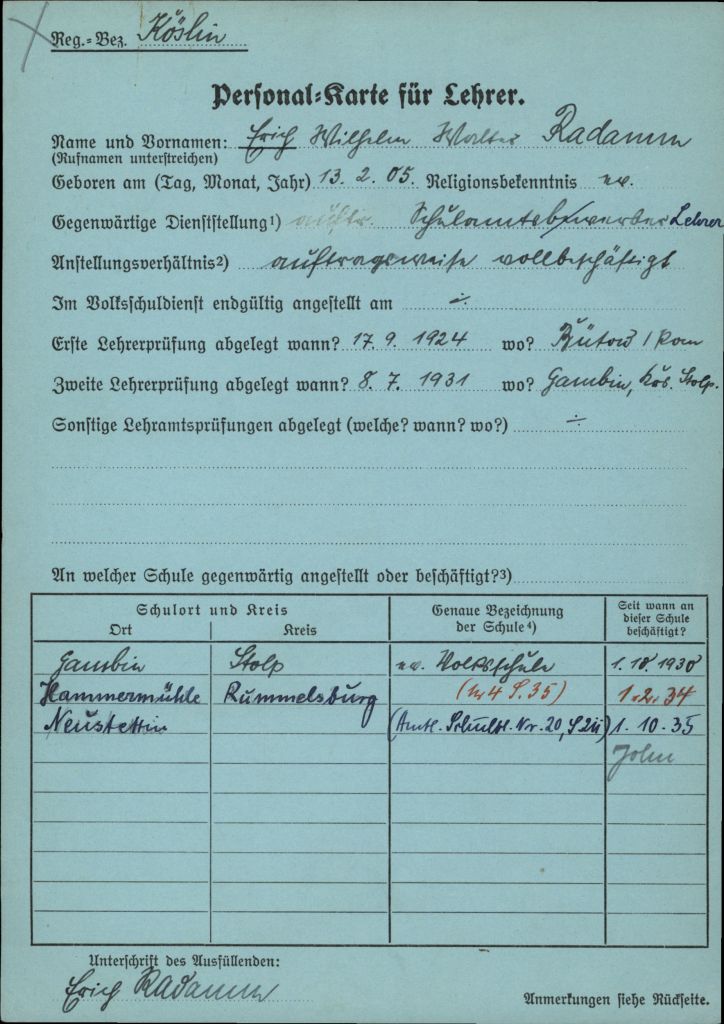 Reg.-Bez. Köslin
Personal-Karte für Lehrer.
Name und Vornamen: Erich Wilhelm Walter Radamm
(Rufnamen unterstreichen)
Geboren am (Tag, Monat, Jahr) 13. 2. 05. Religionsbekenntnis ev.
Gegenwärtige Dienststellung¹) auftr. Schulamtsbewerber Lehrer
Anstellungsverhältnis²) auftragsweise vollbeschäftigt
Im Volksschuldienst endgültig angestellt am ÷
Erste Lehrerprüfung abgelegt wann? 17. 9. 1924 wo? Bütow / Pom
Zweite Lehrerprüfung abgelegt wann? 8. 7. 1931 wo? Gambin, Krs. Stolp.
Sonstige Lehramtsprüfungen abgelegt (welche? wann? wo?) ÷
An welcher Schule gegenwärtig angestellt oder beschäftigt?³)
Schulort und Kreis Genaue Bezeichnung der Schule⁴) Seit wann an dieser Schule beschäftigt?
Ort Kreis
Gambin Stolp ev. Volksschule 1. 10. 1930
Hammermühle Rummelsburg (Nr 4 S. 35) 1. 2. 34
Neustettin (Amtl. Schulbl. Nr. 20, S 211) 1. 10. 35
Unterschrift des Ausfüllenden:
Erich Radamm
Anmerkungen siehe Rückseite.